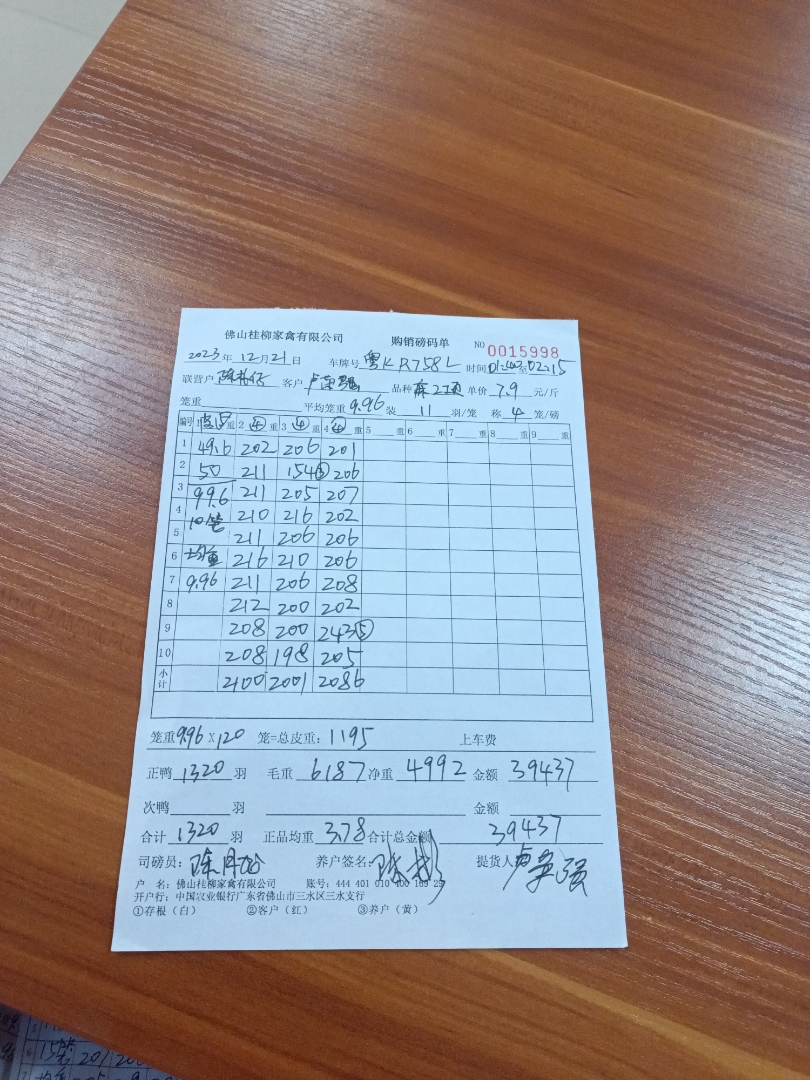 佛山桂柳家禽有限公司 购销磅码单 NO 0015998
2023年12月21日 车牌号粤KR758L 时间 至02:15
联营户 客户 品种 单价7.9元/斤
笼重 平均笼重9.96装11羽/笼 称4笼/磅
编号 1皮 重 2④重 3④重 4④重 5 重 6 重 7 重 8 重 9 重
1 49.6 202 206 201
2 50 211 154③ 206
3 99.6 211 205 207
4 10笼 210 216 202
5 211 206 206
6 均重 216 210 206
7 9.96 211 206 208
8 212 200 202
9 208 200 243⑤
10 208 198 205
小计 2100 2001 2086
笼重9.96X120 笼=总皮重:1195 上车费
正鸭1320羽 毛重6187净重4992金额39437
次鸭 羽 金额
合计1320羽 正品均重3.78合计总金额39437
司磅员: 养户签名: 提货人
户 名:佛山桂柳家禽有限公司 账号:444 401 010 400 169
开户行:中国农业银行广东省佛山市三水区三水支行
①存根(白) ②客户(红) ③养户(黄)
15笼 201